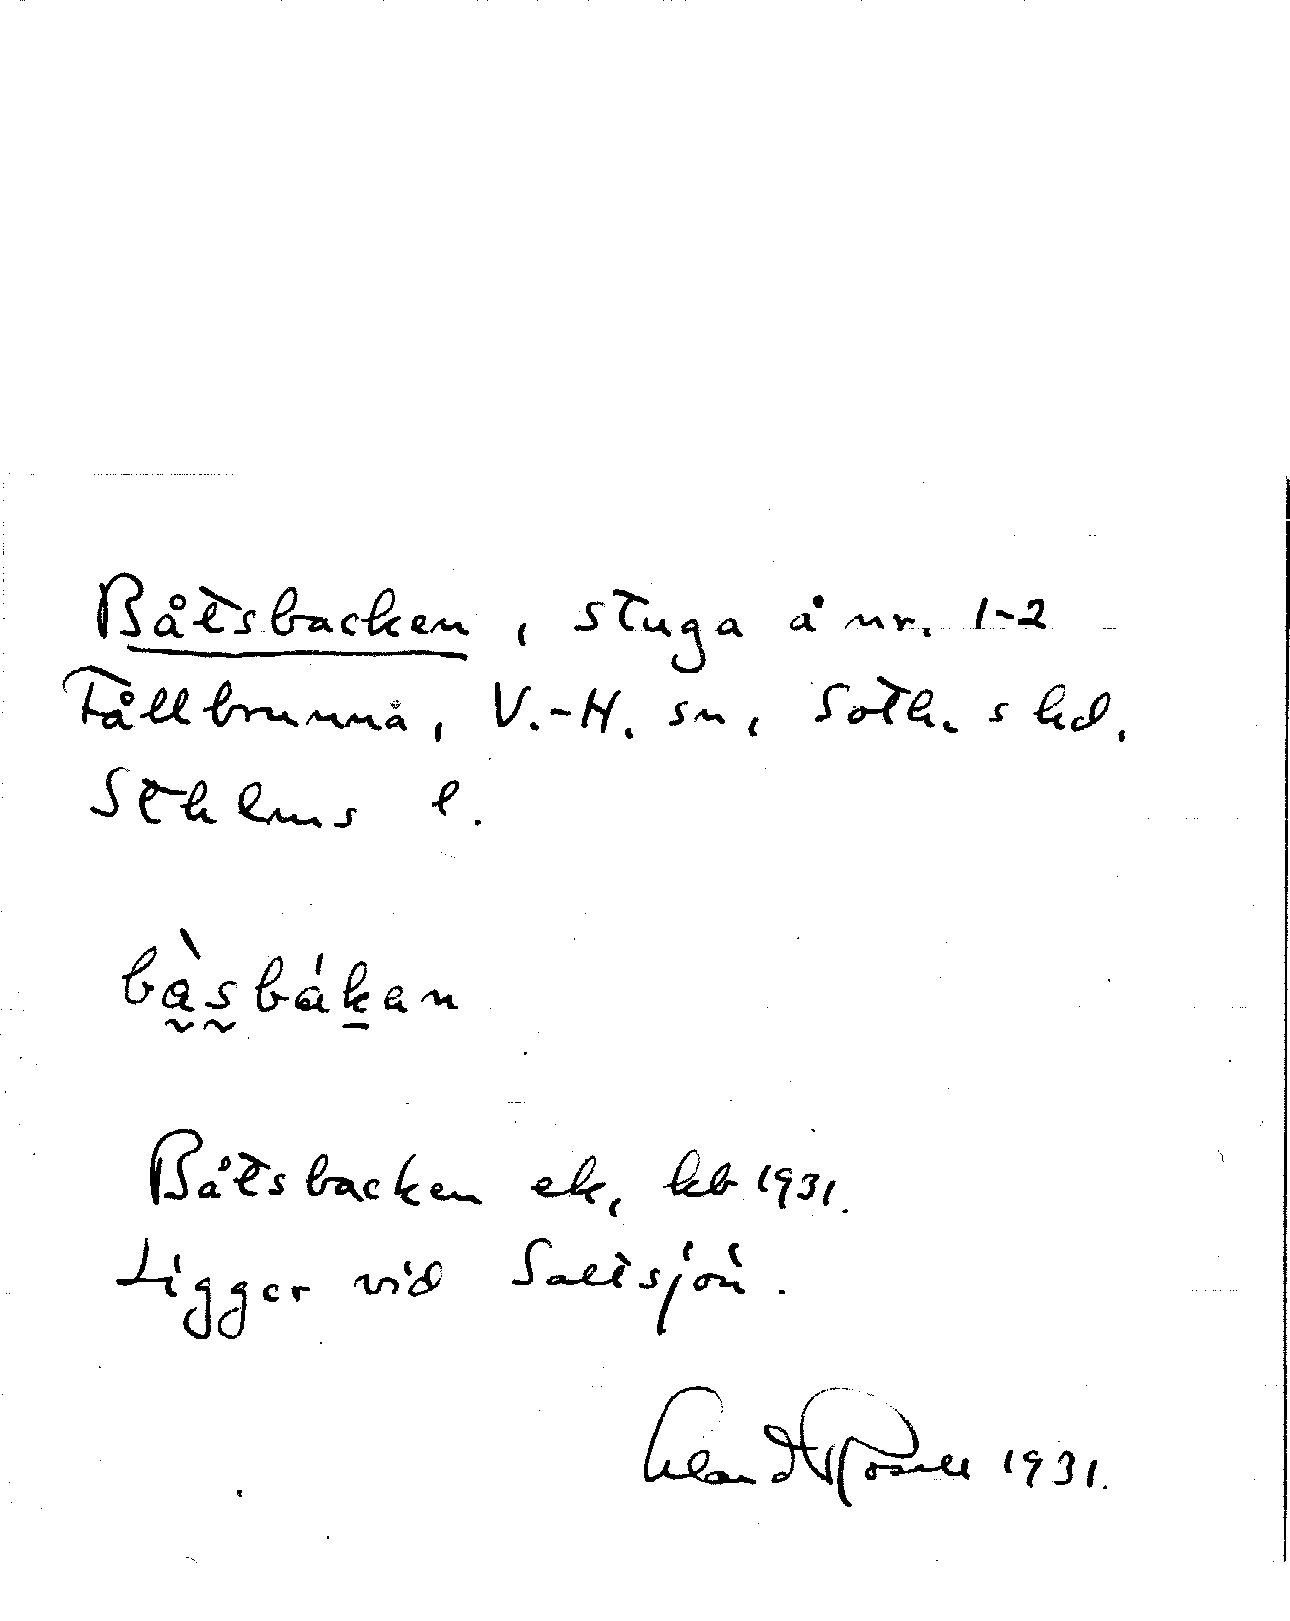 Båtsbacken, stuga å nr. 1-2
Fållbrunna, V.-H. sn, Soth. s hd.
Sthlms l.
bàsbákan
Båtsbacken ek, kb 1931.
Ligger vid Saltsjön.
1931.